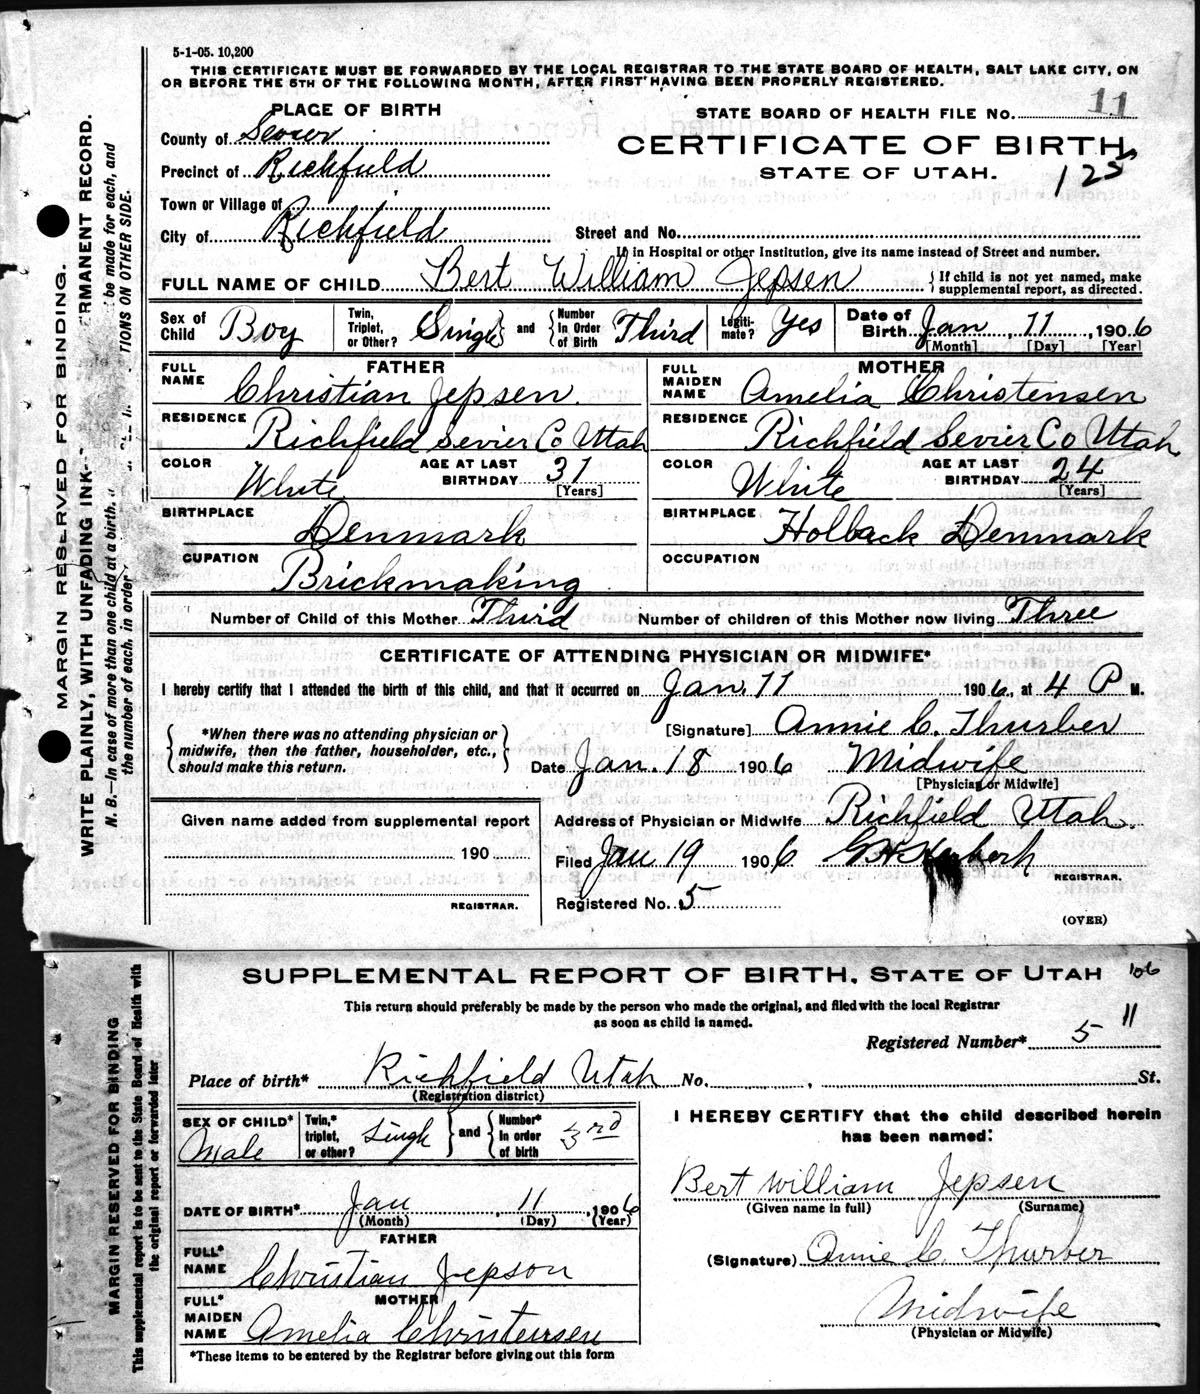 5-1-05. 10,200
THIS CERTIFICATE MUST BE FORWARDED BY THE LOCAL REGISTRAR TO THE STATE BOARD OF HEALTH, SALT LAKE CITY, ON
OR BEFORE THE 5TH OF THE FOLLOWING MONTH, AFTER FIRST HAVING BEEN PROPERLY REGISTERED.
PLACE OF BIRTH
County of Sevier
Precinct of Richfield
Town or Village of
City of Richfield
STATE BOARD OF HEALTH FILE No. 11
CERTIFICATE OF BIRTH
STATE OF UTAH.
125
Street and No.
If in Hospital or other Institution, give its name instead of Street and number.
FULL NAME OF CHILD Bert William Jepsen { If child is not yet named, make supplemental report, as directed.
Sex of Child Boy Twin, Triplet, or Other? Single } and { Number In Order of Birth Third Legiti-mate? Yes Date of Birth Jan, 11, 1906
[Month] [Day] [Year]
FATHER
FULL NAME Christian Jepsen.
RESIDENCE Richfield Sevier Co Utah
COLOR White AGE AT LAST BIRTHDAY 31 [Years]
BIRTHPLACE Denmark
CUPATION Brickmaking
MOTHER
FULL MAIDEN NAME Amelia Christensen
RESIDENCE Richfield Sevier Co Utah
COLOR White AGE AT LAST BIRTHDAY 24 [Years]
BIRTHPLACE Holback Denmark
OCCUPATION
Number of Child of this Mother Third Number of children of this Mother now living Three
CERTIFICATE OF ATTENDING PHYSICIAN OR MIDWIFE*
I hereby certify that I attended the birth of this child, and that it occurred on Jan. 11 1906, at 4 P M.
{ *When there was no attending physician or midwife, then the father, householder, etc., should make this return. }
[Signature] Annie C. Thurber
Date Jan. 18 1906 Midwife
[Physician or Midwife]
Given name added from supplemental report
190
REGISTRAR.
Address of Physician or Midwife Richfield Utah.
Filed Jan 19 1906
REGISTRAR.
Registered No. 5
(OVER)
MARGIN RESERVED FOR BINDING.
WRITE PLAINLY, WITH UNFADING INK RMANENT RECORD.
N. B.—In case of more than one child at a birth. be made for each, and
the number of each. in order TIONS ON OTHER SIDE.
SUPPLEMENTAL REPORT OF BIRTH, STATE OF UTAH 106
This return should preferably be made by the person who made the original, and filed with the local Registrar
as soon as child is named.
Registered Number* 5 11
Place of birth* Richfield Utah No. , St.
(Registration district)
SEX OF CHILD* Male Twin,* triplet, or other? Single } and { Number* in order of birth 3rd
DATE OF BIRTH* Jan, 11, 1906
(Month) (Day) (Year)
FATHER
FULL* NAME Christian Jepson
MOTHER
FULL* MAIDEN NAME Amelia Christensen
*These items to be entered by the Registrar before giving out this form
I HEREBY CERTIFY that the child described herein
has been named:
Bert William Jepsen
(Given name in full) (Surname)
(Signature) Annie C. Thurber
Midwife
(Physician or Midwife)
MARGIN RESERVED FOR BINDING
This supplemental report is to be sent to the State Board of Health with
the original report or forwarded later